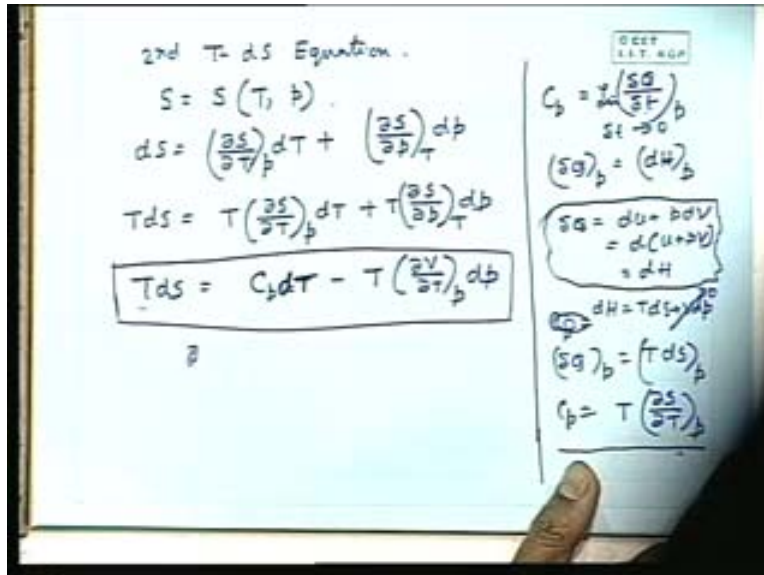 2nd T-ds Equation.
S = S(T, p).
dS = (∂S/∂T)_p dT + (∂S/∂p)_T dp
Tds = T(∂S/∂T)_p dT + T(∂S/∂p)_T dp
Tds = C_p dT - T(∂V/∂T)_p dp
C_p = Lt(δQ/δt)_p
δt → 0
(δQ)_p = (dH)_p
δQ = du + pdV
= d(u+pV)
= dH
dH = Tds + vdp 0
(δQ)_p = (Tds)_p
C_p = T(∂S/∂T)_p
I.I.T. KGP